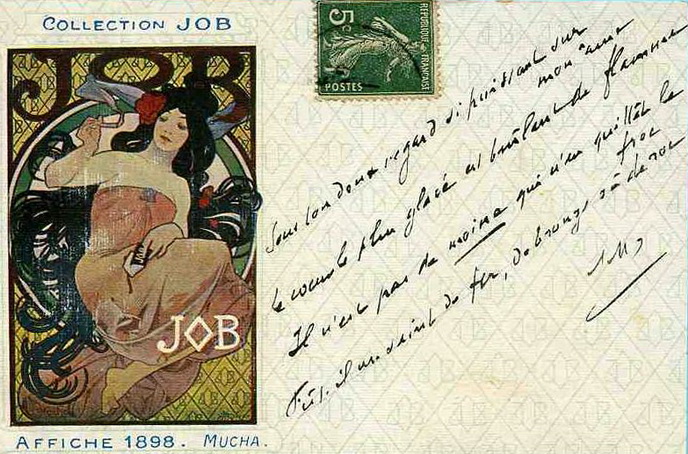 COLLECTION JOB
JOB
JOB
AFFICHE 1898. MUCHA.
5c
REPUBLIQUE FRANCAISE
POSTES
Sous ton doux regard si puissant sur
mon âme
Le cœur le plus glacé est brûlant de flamme
Il n'est pas de moine qui n'en quittât le
froc
Fût-il un saint de fer, de bronze ou de roc